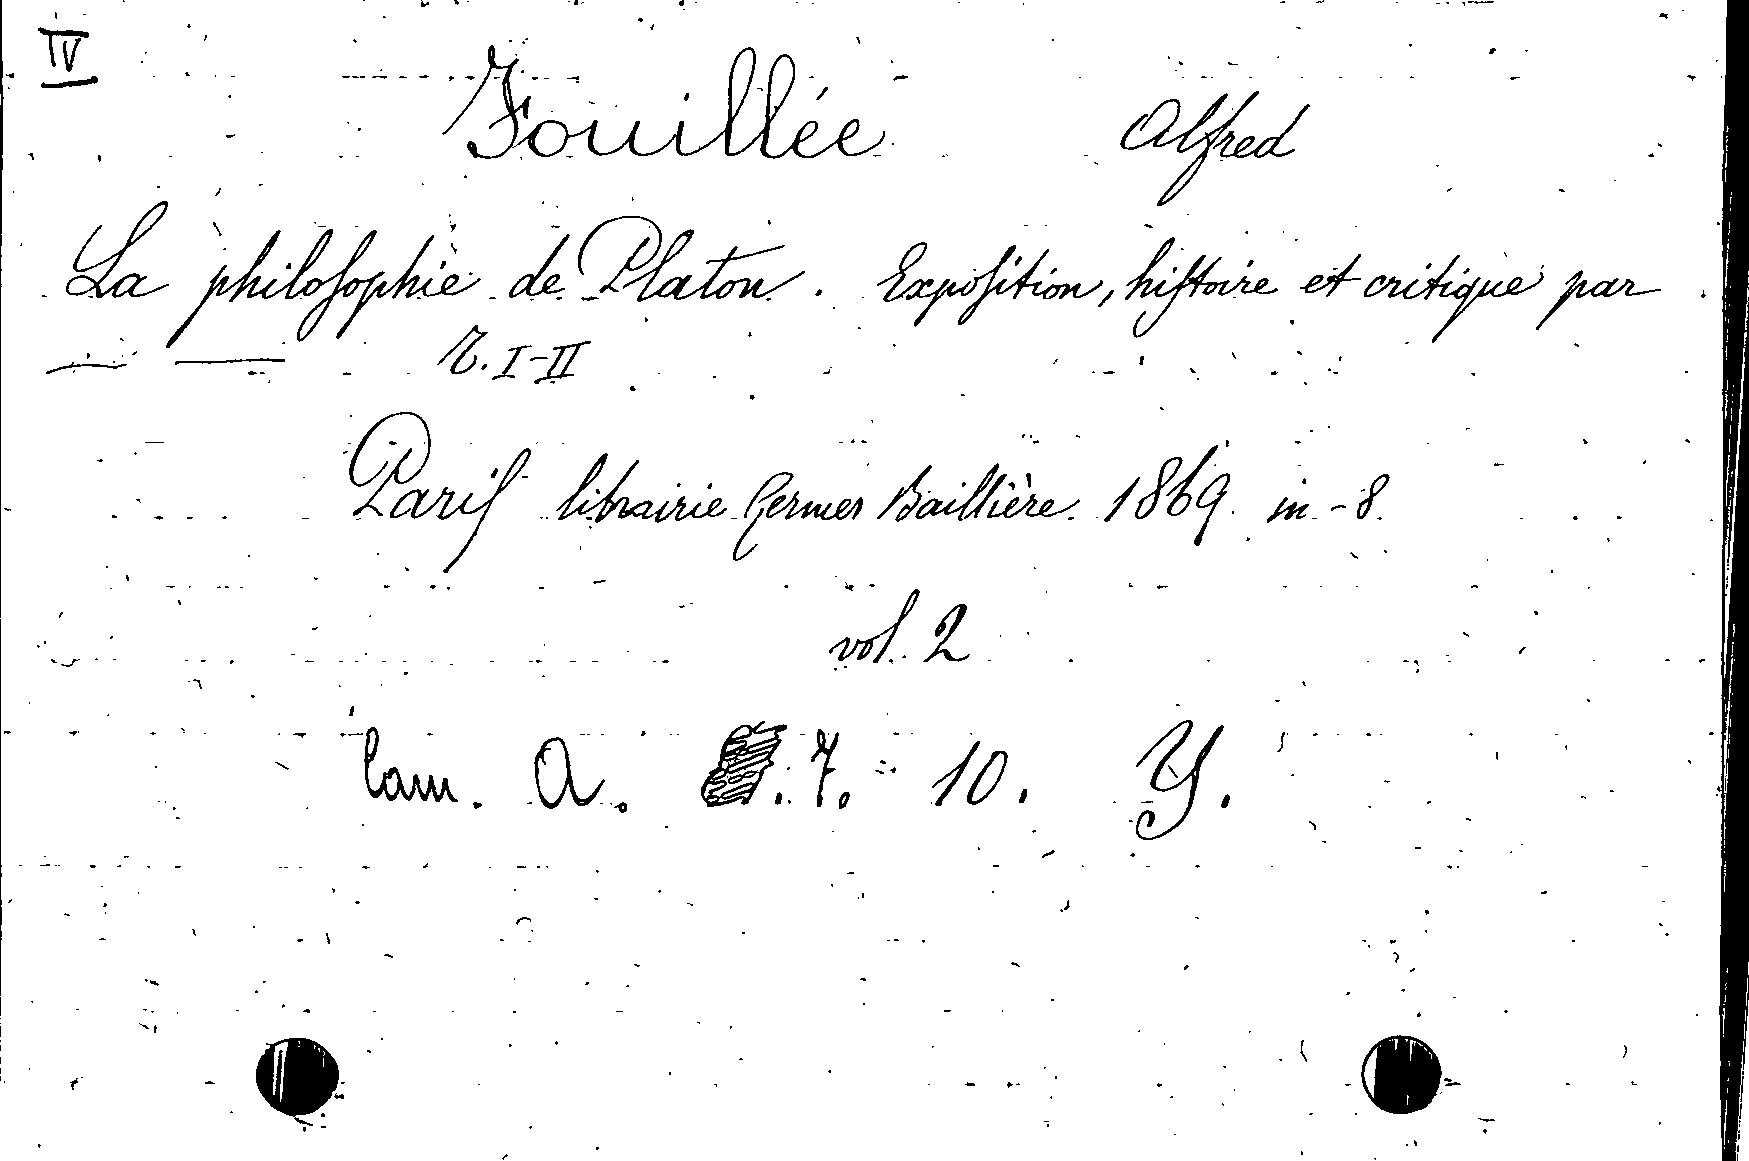 IV
Fouillée Alfred
La philosophie de Platon. Exposition, histoire et critique par
— — T. I-II
Paris librairie Germer Baillière 1869 in-8
vol. 2
Cam. A. 7. 10. Y.